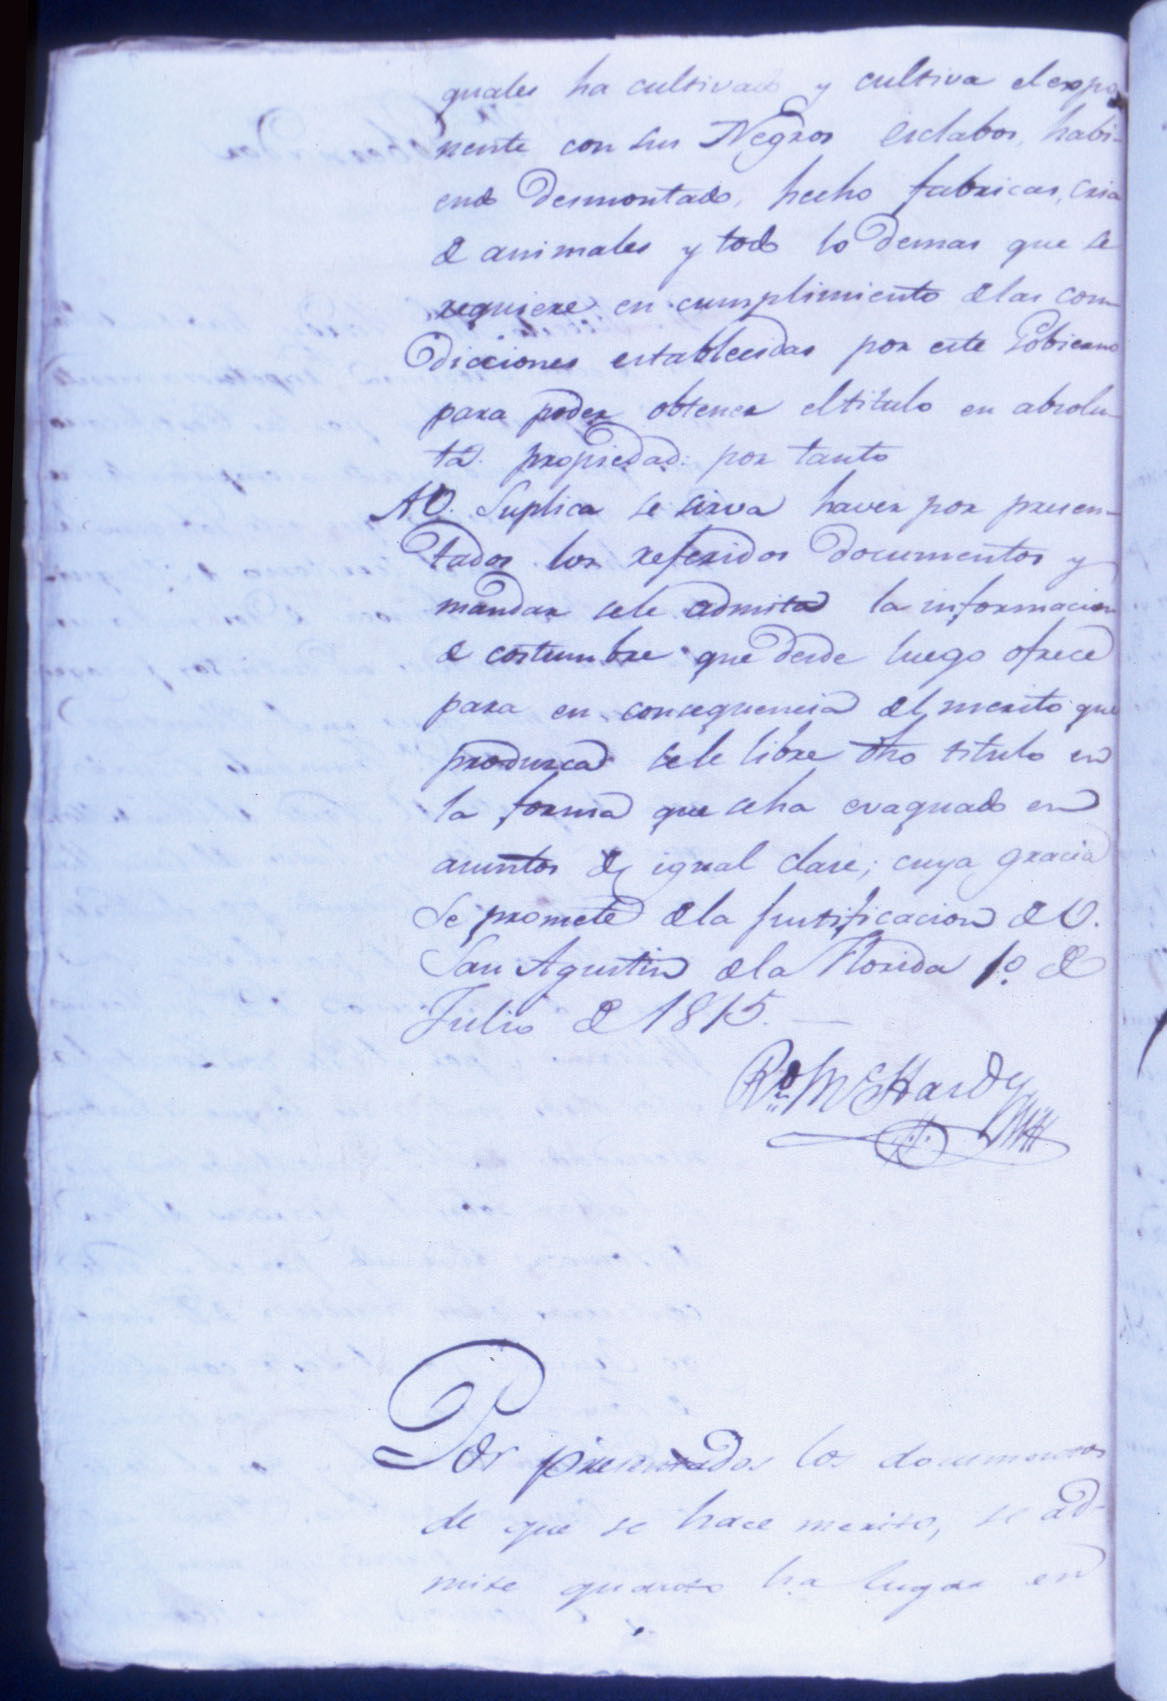 quales ha cultivado y cultiva el expo
nente con sus Negros esclabos, habi-
endo desmontado, hecho fabricas, cria
de animales y todo lo demas que se
requiere en cumplimiento de las con-
dicciones establecidas por este Gobierno
para poder obtener el titulo en absolu-
ta propiedad: por tanto
A V. Suplica se sirva haver por presen-
tados los referidos documentos y
mandar se le admita la informacion
de costumbre que desde luego ofrece
para en consequencia del merito que
produzca se le libre dho titulo en
la forma que se ha evaquado en
asuntos de igual clase; cuya gracia
se promete de la justificacion de V.
San Agustin de la Florida 1º. de
Julio de 1815. —
Rt. McHardy
Por presentados los documentos
de que se hace merito, se ad-
mite quanto ha lugar en